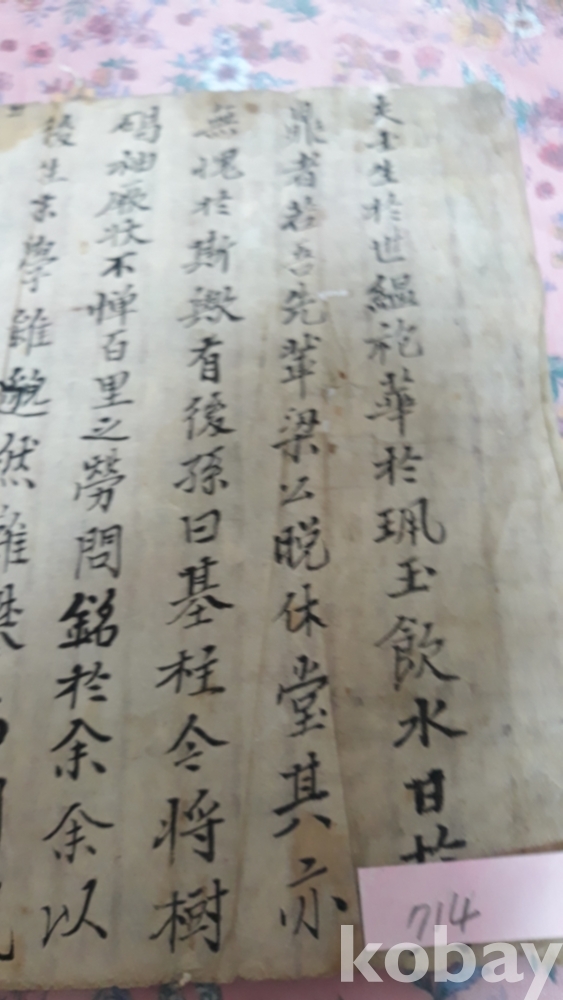 夫士生於世縕袍華於珮玉飮水甘於
鼎者若吾先輩梁公晩休堂其亦
無愧於斯歟有後孫曰基柱今將樹
碣袖厥狀不憚百里之勞問銘於余余以
後生末學雖
然
714
kobay